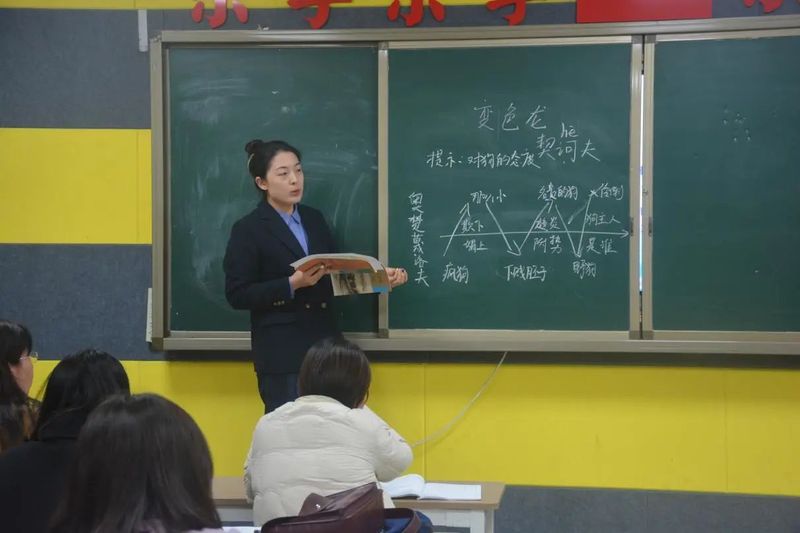 变色龙
hè
契诃夫
提示：对狗的态度
奥楚蔑洛夫
那小
名贵的狗
欺下
媚上
趋炎
附势
狗主人
是谁
疯狗
下贱胚子
野狗